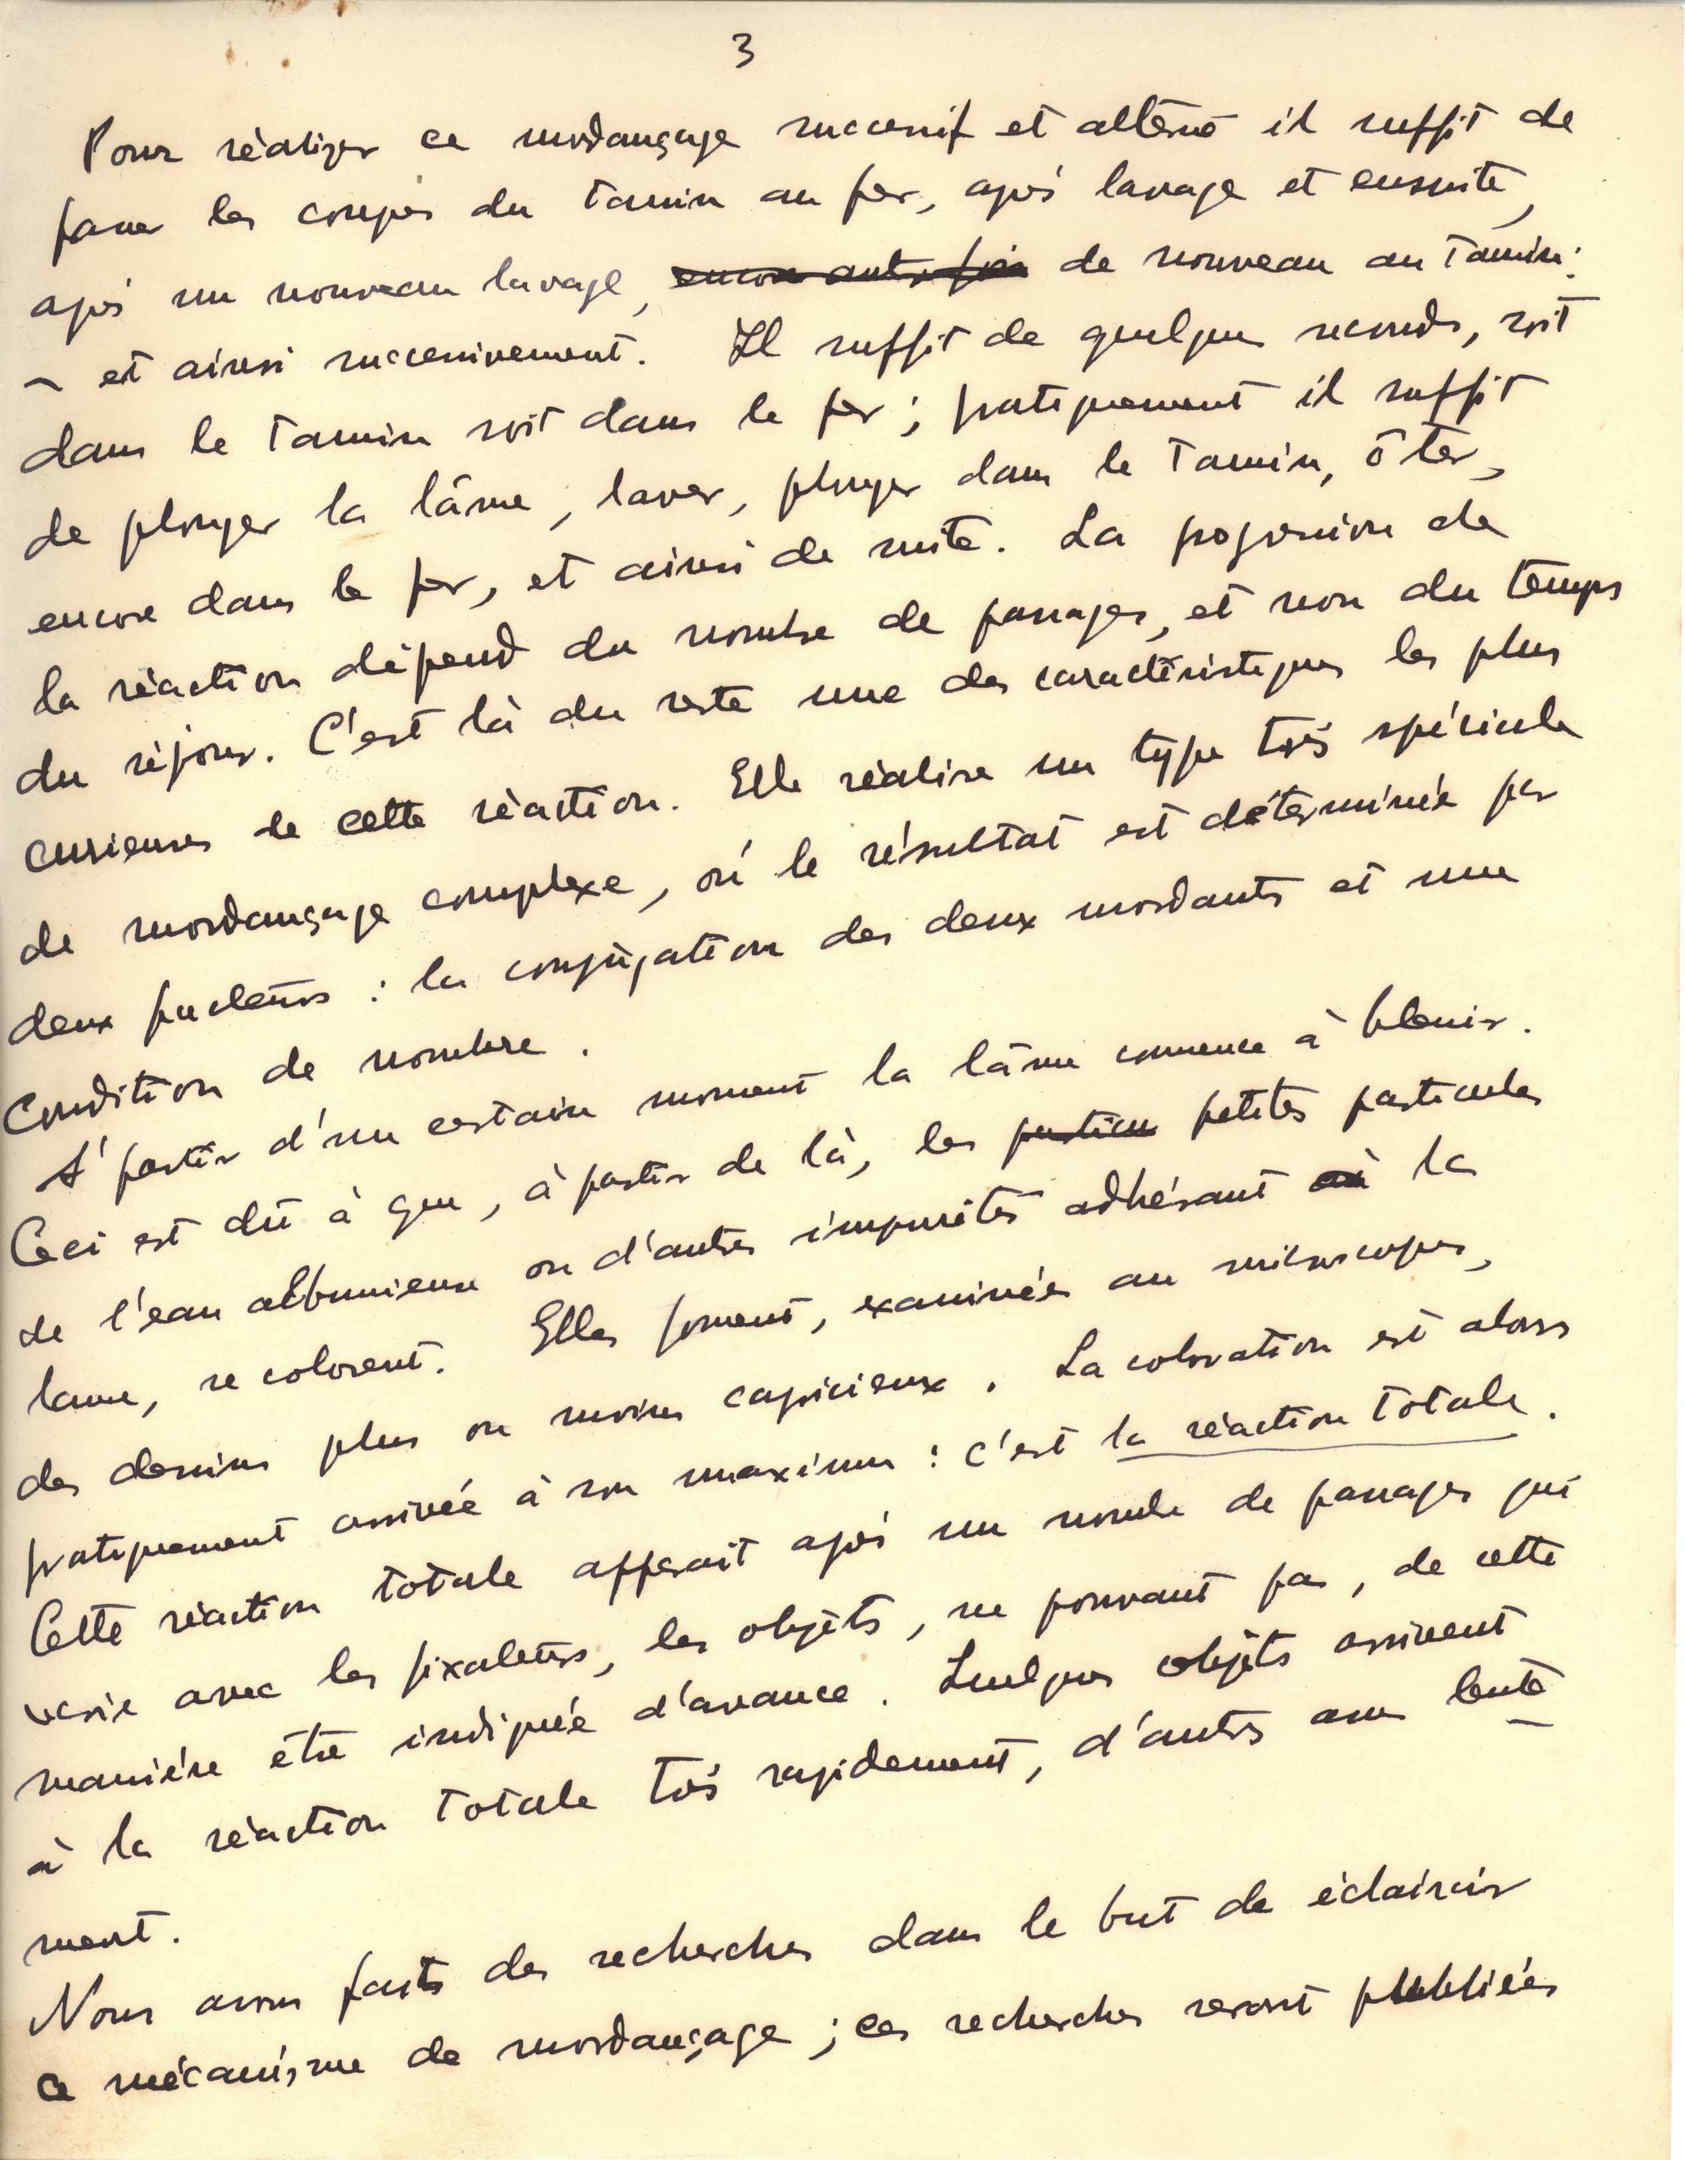 3
Pour réaliser ce mordançage successif et alterné il suffit de
passer les coupes du tanin au fer, après lavage et ensuite,
après un nouveau lavage, encore autre fois de nouveau au tanin;
– et ainsi successivement. Il suffit de quelques seconds, soit
dans le tannin soit dans le fer; pratiquement il suffit
de plonger la lâme, laver, plonger dans le tannin, ôter,
encore dans le fer, et ainsi de suite. La progression de
la réaction dépend du nombre de passages, et non du temps
du séjour. C'est là du reste une des caractéristiques les plus
curieuses de cette réaction. Elle réalise un type très spéciale
de mordançage complexe, où le résultat est déterminée par
deux facteurs : la conjugation des deux mordants et une
condition de nombre.
A' partir d'un certain moment la lâme comence à bleuir.
Ceci est dû à que, à partir de là, les particu petites particules
de l'eau albumineuse ou d'autres impurités adhérant à la
lame, se colorent. Elles forment, examinées au microscopes,
des dessins plus ou moins capricieux. La coloration est alors
pratiquement arrivée à son maximum : c'est la réaction totale.
Cette réaction totale apperait après un nombre de passages qui
varie avec les fixateurs, les objèts, ne pouvant pas, de cette
manière être indiquée d'avance. Quelques objèts arrivent
à la réaction totale très rapidement, d'autres assez lente
ment.
Nous avons faits des recherches dans le but de éclaircir
ce mécanisme de mordançage ; ces recherches seront publiées